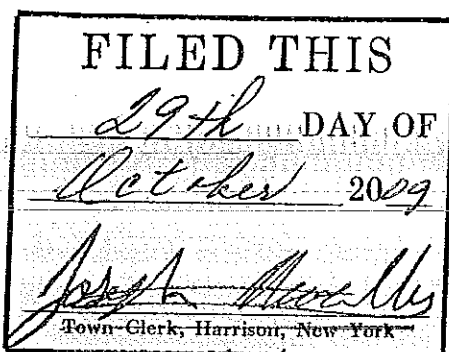 FILED THIS
29th DAY OF
October 2009
Joseph
Town Clerk, Harrison, New York